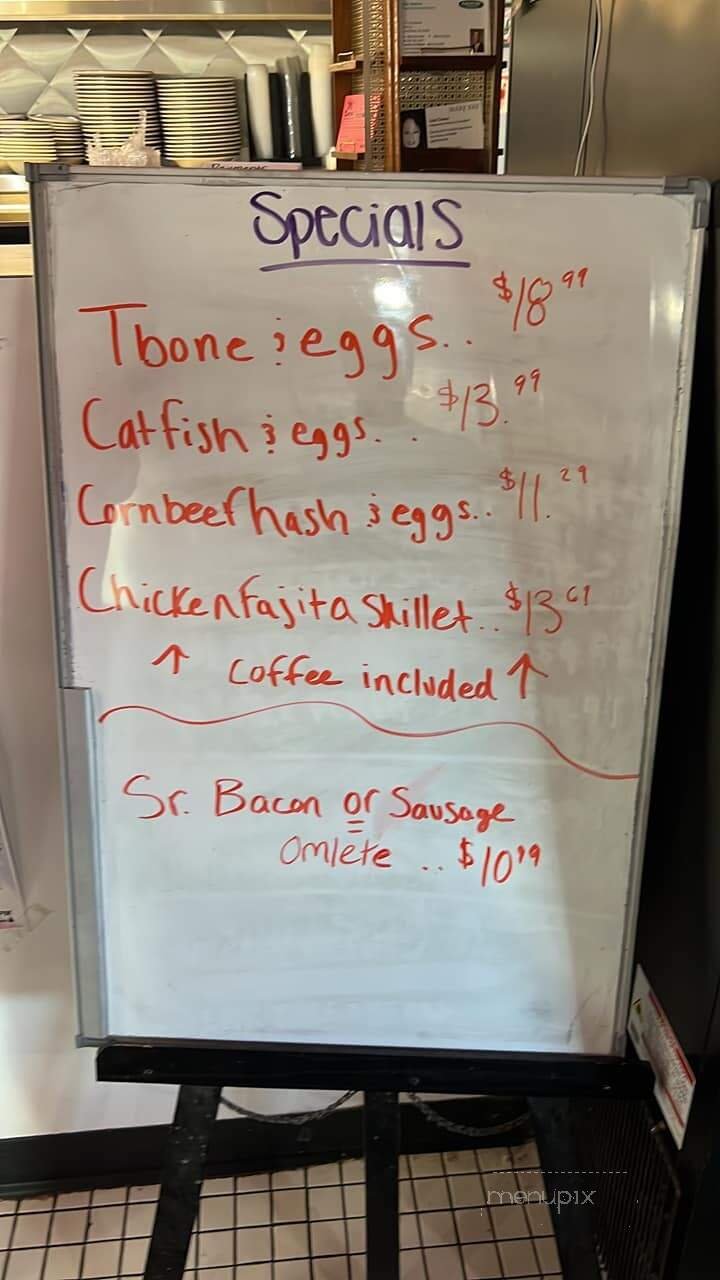 Specials
Tbone & eggs.. $18 99
Catfish & eggs. . $13.99
Cornbeef hash & eggs.. $11.29
Chicken Fajita Skillet.. $13
↑ coffee included ↑
Sr. Bacon or Sausage
Omlete .. $10
menupix